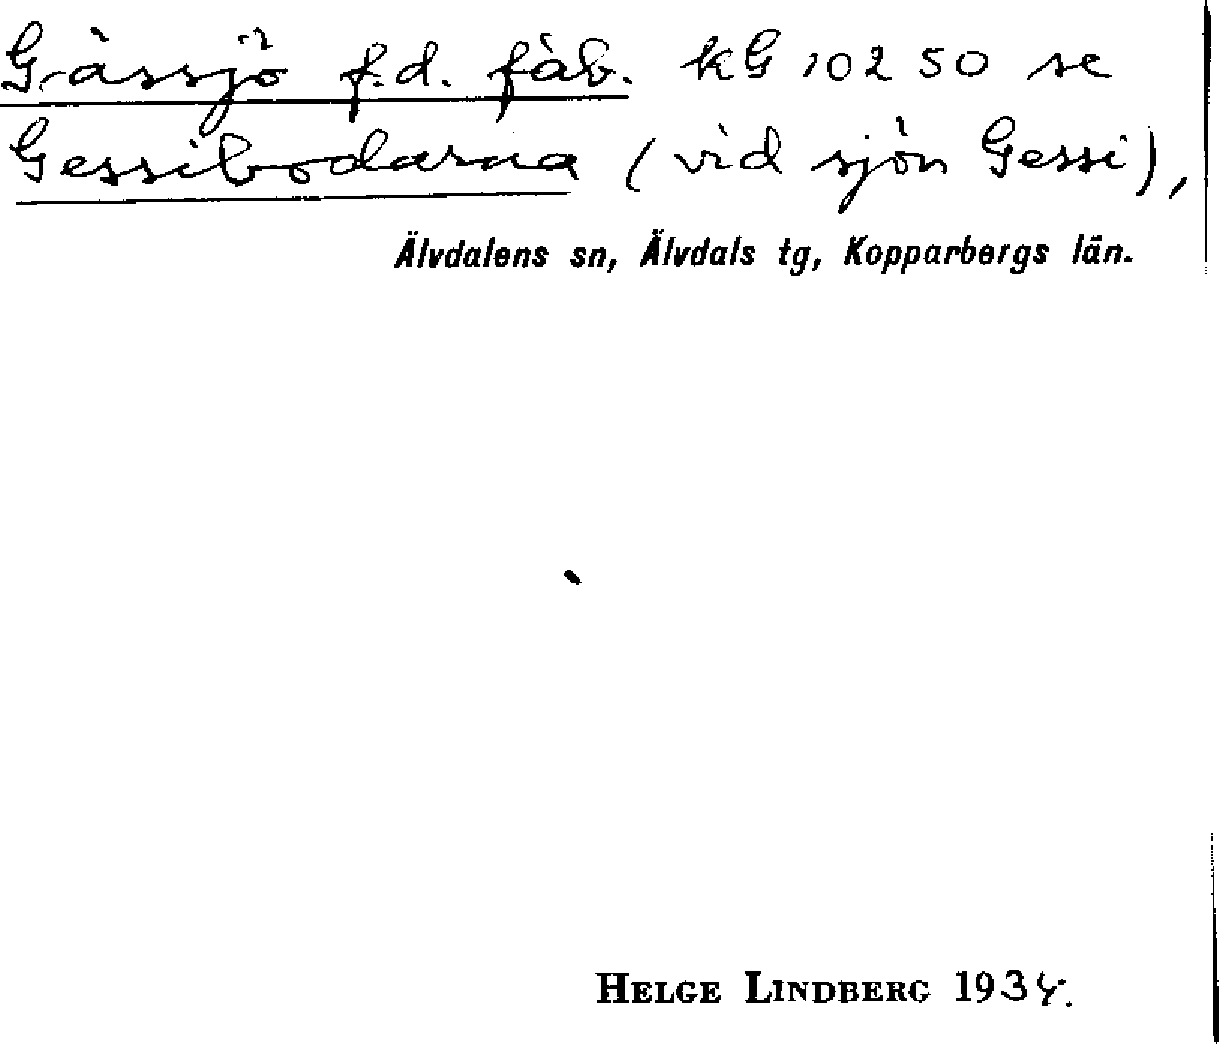 Gässjö f.d. fäb. kG 10250 se
Gessibodarna (vid sjön Gessi),
Älvdalens sn, Älvdals tg, Kopparbergs län.
HELGE LINDBERG 1934.